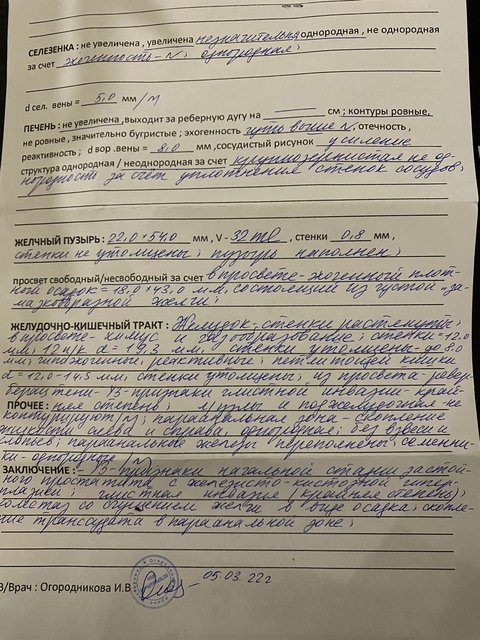 СЕЛЕЗЕНКА : не увеличена , увеличена незначительно однородная , не однородная
за счет эхогенность - N; однородная;
d сел. вены = 5,0 мм /N
ПЕЧЕНЬ : не увеличена ,выходит за реберную дугу на см ; контуры ровные,
не ровные , значительно бугристые ; эхогенность чуть выше N , отечность ,
реактивность ; d вор .вены = 8.0 мм ,сосудистый рисунок усиление
структура однородная / неоднородная за счет крупнозернистая не од-
нородность за счёт уплотнения стенок сосудов;
ЖЕЛЧНЫЙ ПУЗЫРЬ : 22,0 × 54,0 мм , V - 32 ml , стенки 0,8 мм ,
стенки не утолщены; пузырь наполнен;
просвет свободный/несвободный за счет в просвете - эхогенный плот-
ный осадок = 18,0 × 43,0 мм, состоящий из густой "за-
мазкообразной желчи;
ЖЕЛУДОЧНО-КИШЕЧНЫЙ ТРАКТ : Желудок, стенки растянуты;
в просвете - химус и газообразование; стенки = 12,0
мм; 12 п/к d = 19,3 мм, стенки утолщены до 8,0
мм; гипоэхогенные, реактивные; петли тощей кишки
d = 12,0 - 14,5 мм, стенки утолщены, из просвета - ревер-
берац. тени - УЗ-признаки глистной инвазии - край-
ПРОЧЕЕ : няя степень; л/узлы и поджелудочная не
контурируют (N); параанальная зона - скопление
жидкости слева и справа, однородная; без взвеси и
хлопьев; параанальные железы переполнены; семенни-
ки - однородные (N)
ЗАКЛЮЧЕНИЕ : - УЗ-признаки начальной стадии застой-
ного простатита с железисто-кистозной гипер-
плазией; глистная инвазия (крайняя степень);
холестаз со сгущением желчи в виде осадка; скопле-
ние транссудата в параанальной зоне;
УЗ/Врач : Огородникова И.В 05.03.22г